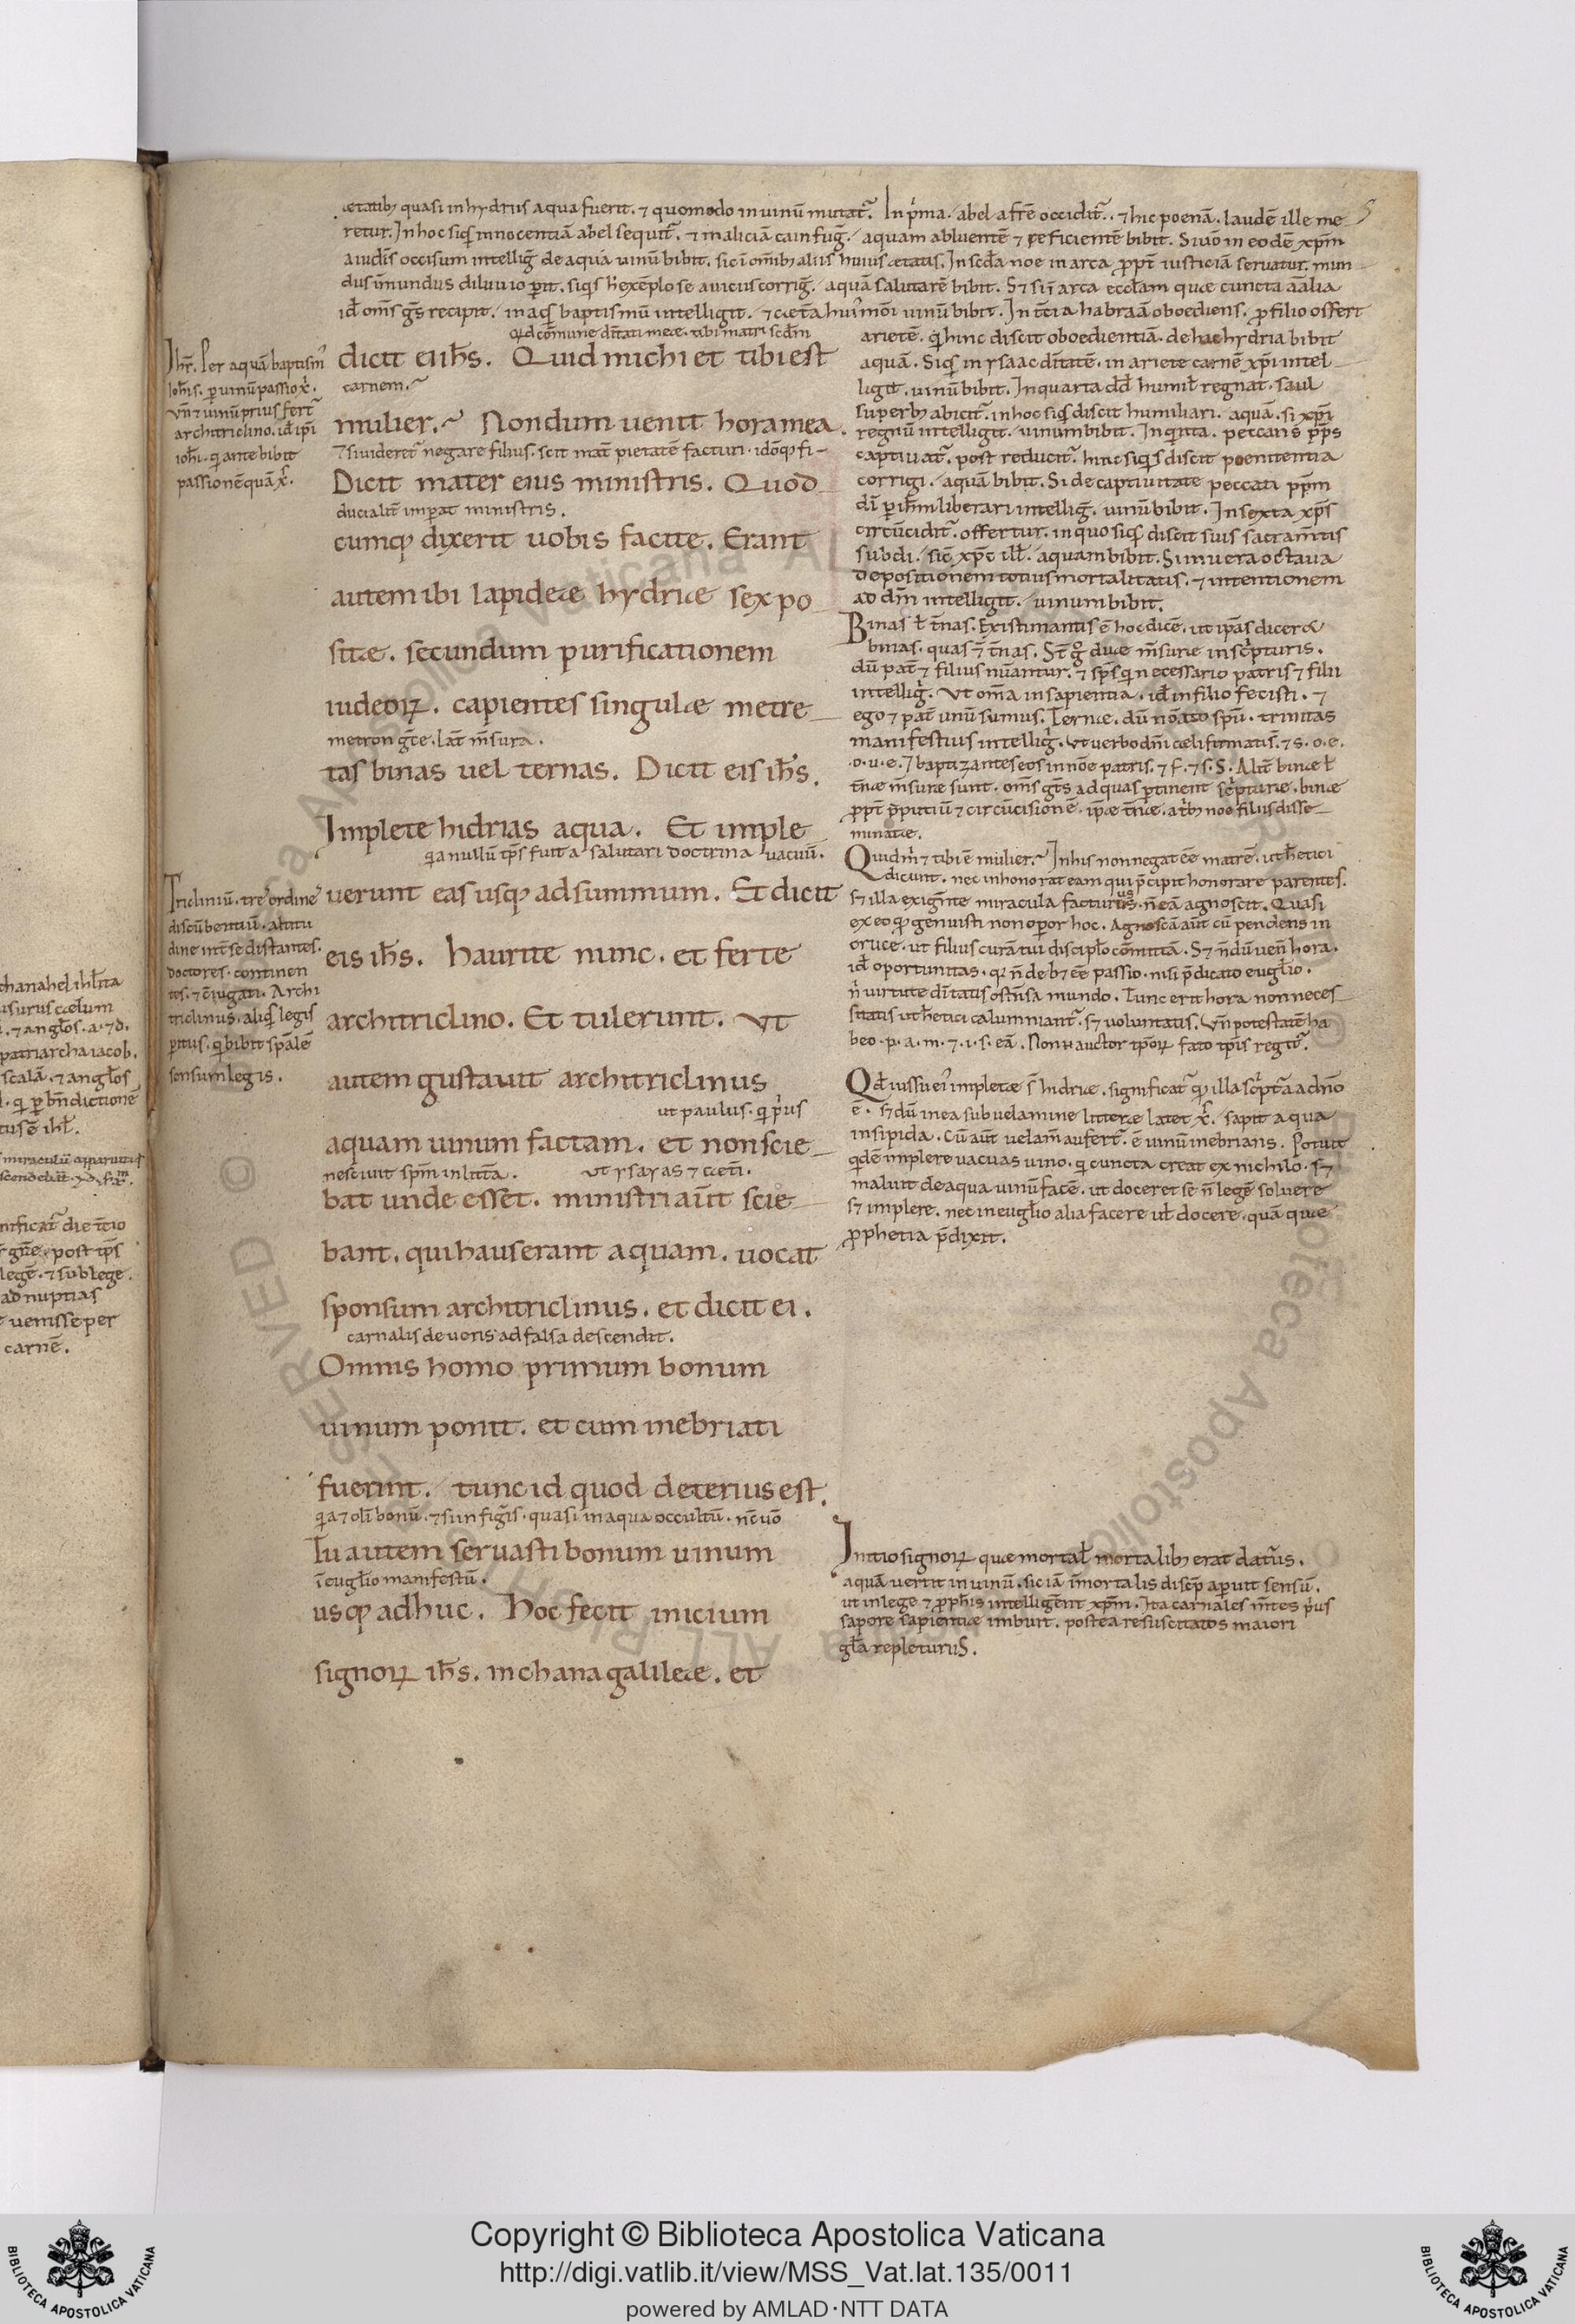 ętatib; quasi in hydriis aqua fuerit. ⁊ quomodo in uinū mutat᷑. In p̾ma. abel a fr̄e occidit᷑. ⁊ hic poenā. laudē ille me
retur. In hoc siq̄s innocentiā abel sequit᷑. ⁊ maliciā cain fuḡ. aquam abluentē ⁊ reficientē bibit. Si uo in eodē xp̄m
a iudeis occisum intelliḡ de aqua uinū bibit. sic ī om̄ib; aliis huius ętatis. In scd̄a noe in arca p̱pt̄ iusticiā seruatur. mun
dus īmundus diluuio p̱it. siq̄s h̾ exēplo se a uiciis corriḡ. aquā salutarē bibit. S; si ī arca eccl̄am quę cuncta aalia
id̄ om̄s gn̄s recipit. in aq̄ baptismū intelligit. ⁊ cęt̄a hui̾ mōi uinū bibit. In t̄cia habraā oboediens. p̱ filio offert
arietē. q̾ hinc discit oboedientiā. de hac hydria bibit
aquā. Siq̄s in ysaac diītatē. in ariete carnē xp̄i intel
ligit. uinū bibit. In quarta dd̄ humil̄ regnat. saul
superb; abicit᷑. in hoc siq̄s discit humiliari. aquā. si xp̄i
regnū intelligit. uinum bibit. In q̾nta. peccans pp̄s
captiuat᷑. post reducit᷑. hinc siq̄s discit poenitentia
corrigi. aquā bibit. Si de captiuitate peccati pp̄m
dī p̱ ih̄m liberari intelliḡ. uinū bibit. In sexta xp̄s
circūcidit᷑. offertur. in quo siq̄s discit suis sacram̄tis
subdi. sic̄ xp̄c ill̄. aquam bibit. Si in uera octaua
depositionem totius mortalitatis. ⁊ intentionem
ad dm̄ intelligit. uinum bibit.
Ih̄r. Per aquā baptism̄
ioh̄is. p̱ uinū passio x̾.
vn̄ ⁊ uinū prius fert᷑
architriclino. id̄ ip̄i
ioh̄i. q̾ ante bibit
passionē quā x̾.
Qd̄ cōmune diītati meę. tibi matri scd̄m
dicit ei ih̄s. Quid michi et tibi est
carnem.
mulier. Nondum uenit hora mea.
⁊ si uideret᷑ negare filius. scit mat̄ pietatē facturi. idōq; fi
Dicit mater eius ministris. Quod
ducialit̄ imperat ministris.
cumq; dixerit uobis facite. Erant
autem ibi lapideę hydrię sex po
sitę. secundum purificationem
iudeoꝝ. capientes singulę metre
metron gc̄e. lat̄ m̄sura.
tas binas uel ternas. Dicit eis ih̄s.
Implete hidrias aqua. Et imple
q̾a nullū tp̄s fuit a salutari doctrina uacuū.
uerunt eas usq; ad summum. Et dicit
eis ih̄s. haurite nunc. et ferte
architriclino. Et tulerunt. Vt
autem gustauit architriclinus
ut paulus. q̾ p̾us
aquam uinum factam. et non scie
nesciuit sp̄m in litt̄a. Vt ysayas ⁊ cęt̄i.
bat unde esset. ministri aūt scie
bant. qui hauserant aquam. uocat
sponsum architriclinus. et dicit ei.
carnalis de ueris ad falsa descendit.
Omnis homo primum bonum
uinum ponit. et cum inebriati
fuerint. tunc id quod deterius est.
q̾a ⁊ oli bonū. ⁊ si in fig̾is. quasi in aqua occultū. nc̄ uō
Tu autem seruasti bonum uinum
ī euḡlio manifestū.
usq; adhuc. Hoc fecit inicium
signoꝝ ih̄s. in chana galileę. et
Tricliniū. tres ordines
discūbentiū. altitu
dine int̄ se distantes.
doctores. continen
tes. ⁊ cōiugati. Archi
triclinus. aliq̄s legis
p̱itus. q̾ bibit sp̄alē
sensum legis.
Binas ł t̄nas. Existimantis ē hoc dicē. ut ip̄as dicer&
binas. quas ⁊ t̄nas. St̄ g̊ duę m̄surę in sc̾pturis.
dū pat̄ ⁊ filius nūantur. ⁊ sp̄s q̾ necessario patris ⁊ filii
intellig̾. Vt om̄a in sapientia. id̄ in filio fecisti. ⁊
ego ⁊ pat̄ unū sumus. Ternę. dū nōato spū. trinitas
manifestius intellig̾. Vt uerbo dn̄i cęli firmati s̄. ⁊ s. o. e.
o. u. e. ⁊ baptizantes eos in nōe patris. ⁊ f. ⁊ s. S. Alit̄ binę ł
t̄nę m̄surę sunt. om̄s gt̄s ad quas p̱tinent sc̾pturę. binę
p̱pt̄ p̄putiū ⁊ circūcisionē. ip̄ę t̄nę. a trib; noe filiis disse
minatę.
Quid m̾ ⁊ tibi ē mulier. In his non negat eē matrē. ut h̄etici
dicunt. nec inhonorat eam qui p̄cipit honorare parentes.
s; illa exigēte miracula facturus. n̄ eā agnoscit. Quasi
ex eo q; genuisti non op̱or hoc. Agnoscā aūt cū pendens in
cruce. ut filius curā tui discipl̄o cōmittā. S; n̄dū uen̄ hora.
id̄ oportunitas. q; n̄ deb; eē passio. nisi p̄dicato euḡlio.
n̾ uirtute diītatis ostn̄sa mundo. Tunc erit hora non neces
sitatis ut h̄etici calumniant᷑. s; uoluntatis. Vn̄ potestatē ha
beo. p. a. m. ⁊. i. s. eā. Non auctor tp̄oꝝ fato tp̄is regit᷑.
Qd̄ iussu ei̾ impletę s̄ hidrię. significat᷑ q; illa sc̾pt̄a a dn̄o
ē. s; dū in ea sub uelamine litterę latet x̾. sapit aqua
insipida. Cū aūt uelam̄ aufert᷑. ē uinū inebrians. Potuit
q̾dē implere uacuas uino. q̾ cuncta creat ex nichilo. s;
maluit de aqua uinū facē. ut doceret se n̄ legē soluere
s; implere. nec in euḡlio alia facere ul̄ docere. quā quę
p̱phetia p̄dixit.
Initio signoꝝ quę mortal̄ mortalib; erat datur̾s.
aquā uertit in uinū. sic iā īmortalis discip̄ aperuit sensū.
ut in lege ⁊ p̱ph̄is intelligēnt xp̄m. Ita carnales m̄tes p̾us
sapore sapientię imbuit. postea resuscitatos maiori
gl̄a repleturus.
patriarcha iacob.
ad nuptias
uenisse per
carnē.
Copyright © Biblioteca Apostolica Vaticana
http://digi.vatlib.it/view/MSS_Vat.lat.135/0011
powered by AMLAD·NTT DATA
BIBLIOTECA APOSTOLICA VATICANA
BIBLIOTECA APOSTOLICA VATICANA